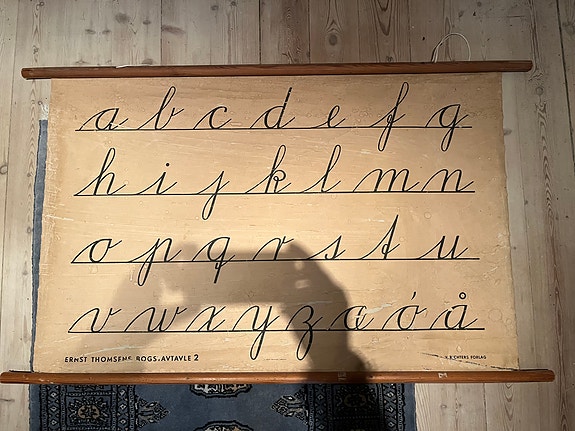 a b c d e f g
h i j k l m n
o p q r s t u
v w x y z æ ø å
ERNST THOMSENS BOGSTAVTAVLE 2
FORLAG